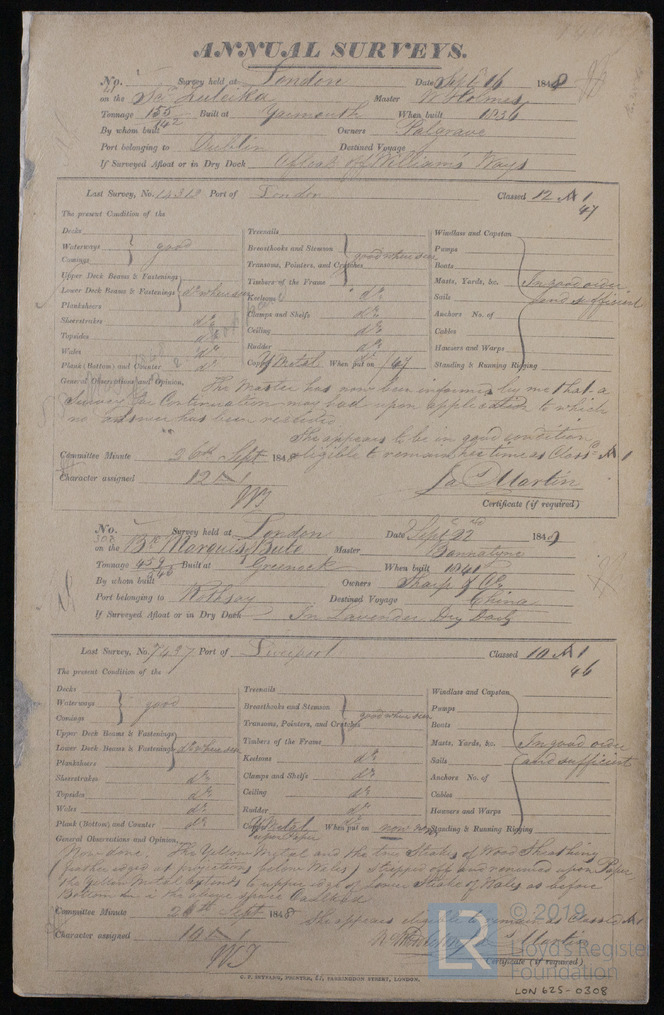 ANNUAL SURVEYS.
No. Survey held at London Date Sept 16 1848
on the Sr Zuleika Master W Holmes
Tonnage 155 Built at Yarmouth When built 1836
142
By whom built Owners Palgrave
Port belonging to Dublin Destined Voyage
If Surveyed Afloat or in Dry Dock Afloat off Williams Ways
Last Survey, No. 14313 Port of London Classed 12 A 1
47
The present Condition of the
Decks
Waterways good
Comings
Upper Deck Beams & Fastenings
Lower Deck Beams & Fastenings do where seen
Planksheers
Sheerstrakes do
Topsides do
Wales do
Plank (Bottom) and Counter do
Treenails
Breasthooks and Stemson good where seen
Transoms, Pointers, and Crutches
Timbers of the Frame
Keelsons do
Clamps and Shelfs do
Ceiling do
Rudder do
Copper Y Metal When put on /47
Windlass and Capstan
Pumps
Boats
Masts, Yards, &c. In good order
Sails and sufficient
Anchors No. of
Cables
Hawsers and Warps
Standing & Running Rigging
General Observations and Opinion, The Master has now been informed by me that a
Survey for Continuation may be had upon application to which
no answer has been received
She appears to be in good condition
Committee Minute 26th Sept 1848 eligible to remain her time as Class A 1
Character assigned 12 A Jas Martin
Certificate (if required)
No. Survey held at London Date Sept 22nd 1848
308
on the Be Marquis of Bute Master Bannatyne
Tonnage 459 Built at Greenock When built 1841
By whom built Owners Sharp & Co
Port belonging to Rothsay Destined Voyage China
If Surveyed Afloat or in Dry Dock In Lavender Dry Dock
Last Survey, No. 7497 Port of Liverpool Classed 10 A 1
46
The present Condition of the
Decks
Waterways good
Comings
Upper Deck Beams & Fastenings
Lower Deck Beams & Fastenings do where seen
Planksheers
Sheerstrakes do
Topsides do
Wales do
Plank (Bottom) and Counter do
Treenails
Breasthooks and Stemson
Transoms, Pointers, and Crutches good where seen
Timbers of the Frame
Keelsons do
Clamps and Shelfs do
Ceiling do
Rudder do
Copper Y Metal When put on now
upon Paper
Windlass and Capstan
Pumps
Boats
Masts, Yards, &c. In good order
Sails and sufficient
Anchors No. of
Cables
Hawsers and Warps
Standing & Running Rigging
General Observations and Opinion,
Now done. The Yellow Metal and the two Strakes of Wood Sheathing
(feather edged at projections below Wales) Stripped off and renewed upon Paper
the Yellow Metal extends to upper edge of lower Strake of Wales as before
Bottom in the above space Caulked
Committee Minute 26th Sept 1848 She appears eligible to remain as Classed A 1
Character assigned 10 A 1 Jas Martin
Certificate (if required)
C. F. SEYFANG, PRINTER, 57, FARRINGDON STREET, LONDON.
LON 625-0308
© 2019
Lloyd's Register
Foundation
LR